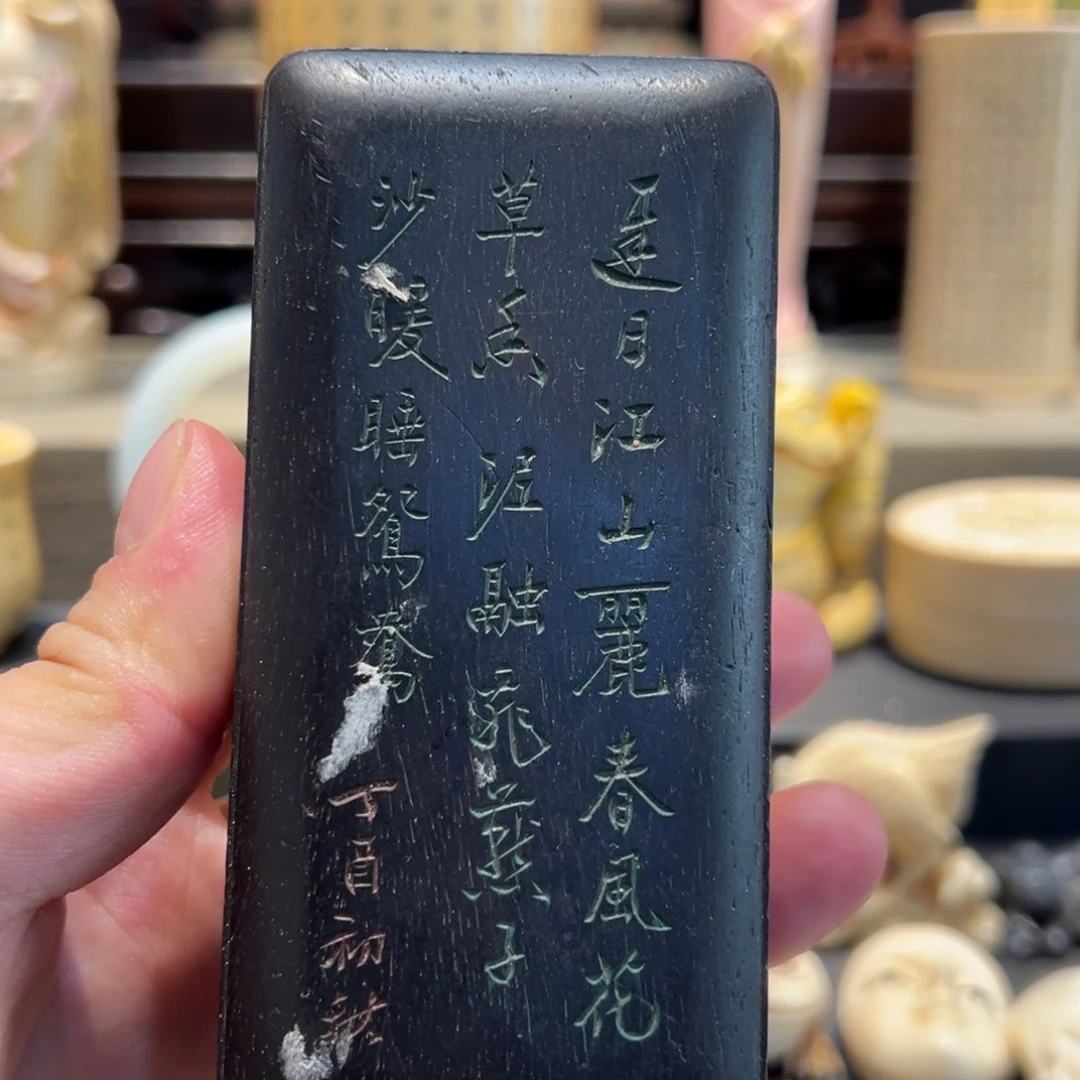 遲日江山麗春風花
草香泥融飛燕子
沙暖睡鴛鴦
丁酉初